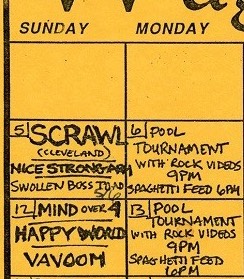 SUNDAY MONDAY
5 SCRAWL
(CLEVELAND)
NICE STRONG ARM
SWOLLEN BOSS TOAD
6 POOL
TOURNAMENT
WITH ROCK VIDEOS
9PM
SPAGHETTI FEED 6PM
12 MIND OVER 4
HAPPY WORLD
VAVOOM
13 POOL
TOURNAMENT
WITH ROCK VIDEOS
9PM
SPAGHETTI FEED
6PM